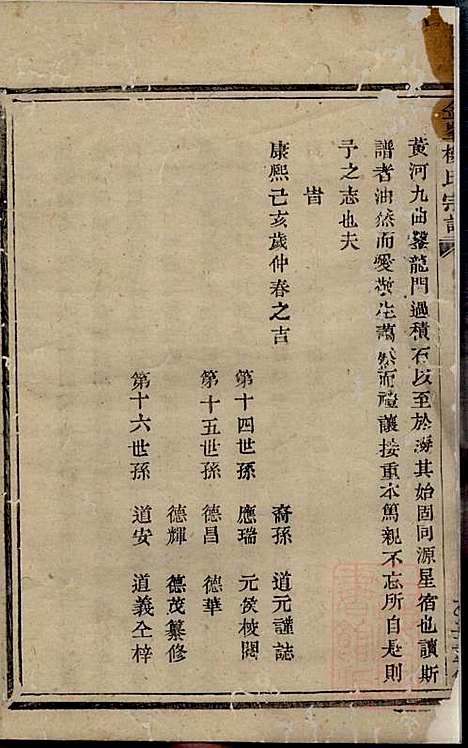 黃河九曲鑿龍門過積石以至於海其始固同源星宿也讀斯
譜者油然而愛敬生藹然而禮讓接重本篤親不忘所自是則
予之志也夫
旹
康熙己亥歲仲春之吉
裔孫 道元謹誌
第十四世孫 應瑞 元侯校閱
第十五世孫 德昌 德華
德輝 德茂纂修
第十六世孫 道安 道義仝梓
楊氏宗譜